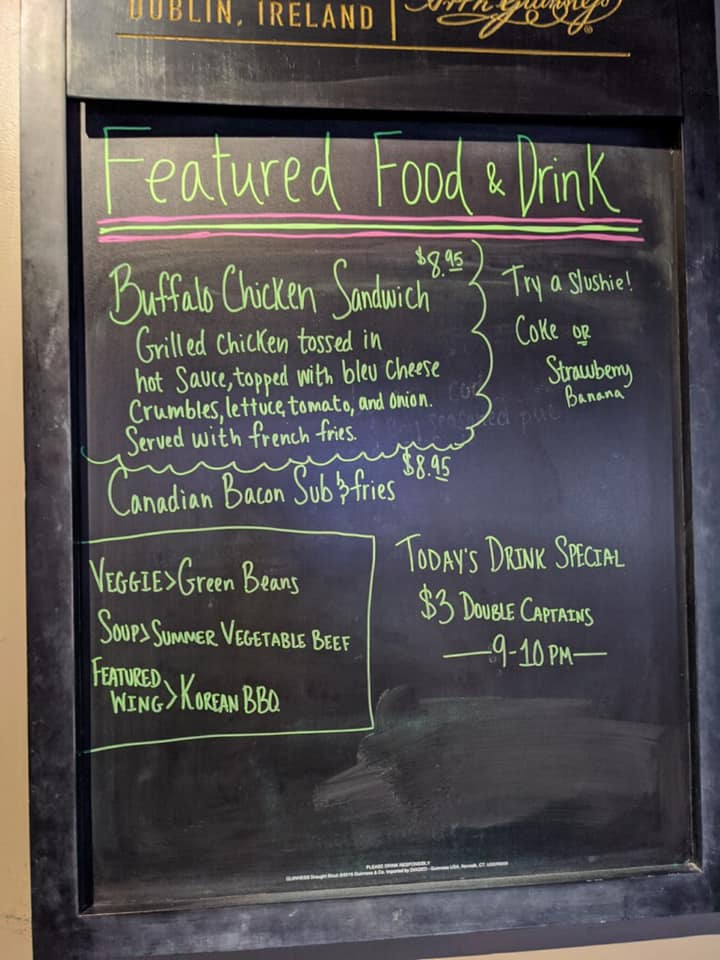 DUBLIN, IRELAND
Featured Food & Drink
$8.95
Buffalo Chicken Sandwich
Grilled chicken tossed in
hot sauce, topped with bleu cheese
crumbles, lettuce, tomato, and onion.
Served with french fries.
$8.95
Canadian Bacon Sub & fries
Try a Slushie!
Coke OR
Strawberry
Banana
VEGGIE>Green Beans
SOUP>SUMMER VEGETABLE BEEF
FEATURED
WING>KOREAN BBQ
TODAY'S DRINK SPECIAL
$3 DOUBLE CAPTAINS
—9-10 PM—
PLEASE DRINK RESPONSIBLY